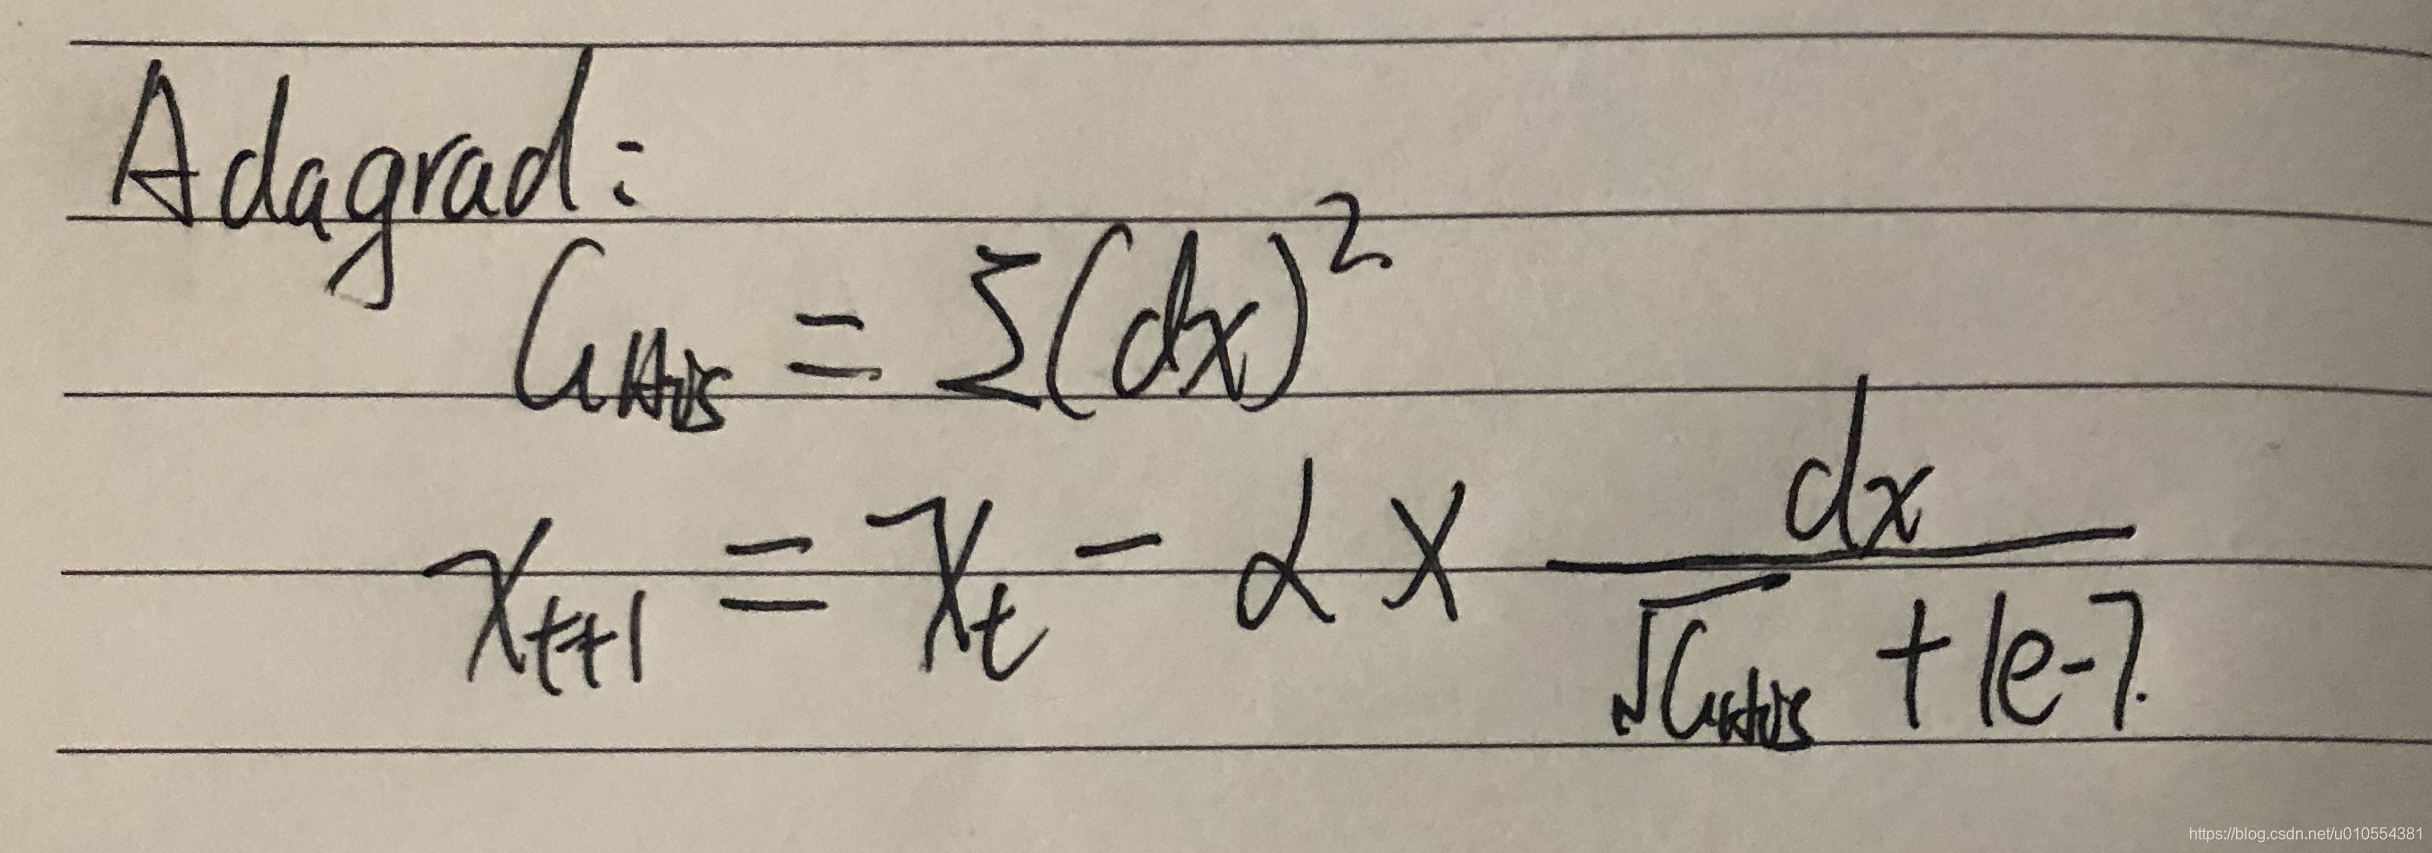 Adagrad:
G_{this} = Σ(dx)²
x_{t+1} = x_t - α × \frac{dx}{\sqrt{G_{this}} + 1e-7}
https://blog.csdn.net/u010554381